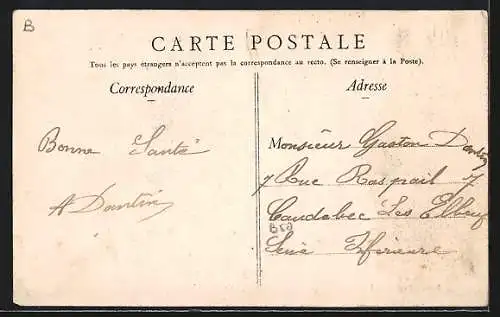 B
CARTE POSTALE
Tous les pays étrangers n'acceptent pas la correspondance au recto. (Se renseigner à la Poste).
Correspondance
Adresse
Bonne Santé
A Dantin
Monsieur Gaston Dantin
7 Rue Raspail 7
Caudebec Les Elbeuf
B50
Seine Iferieure